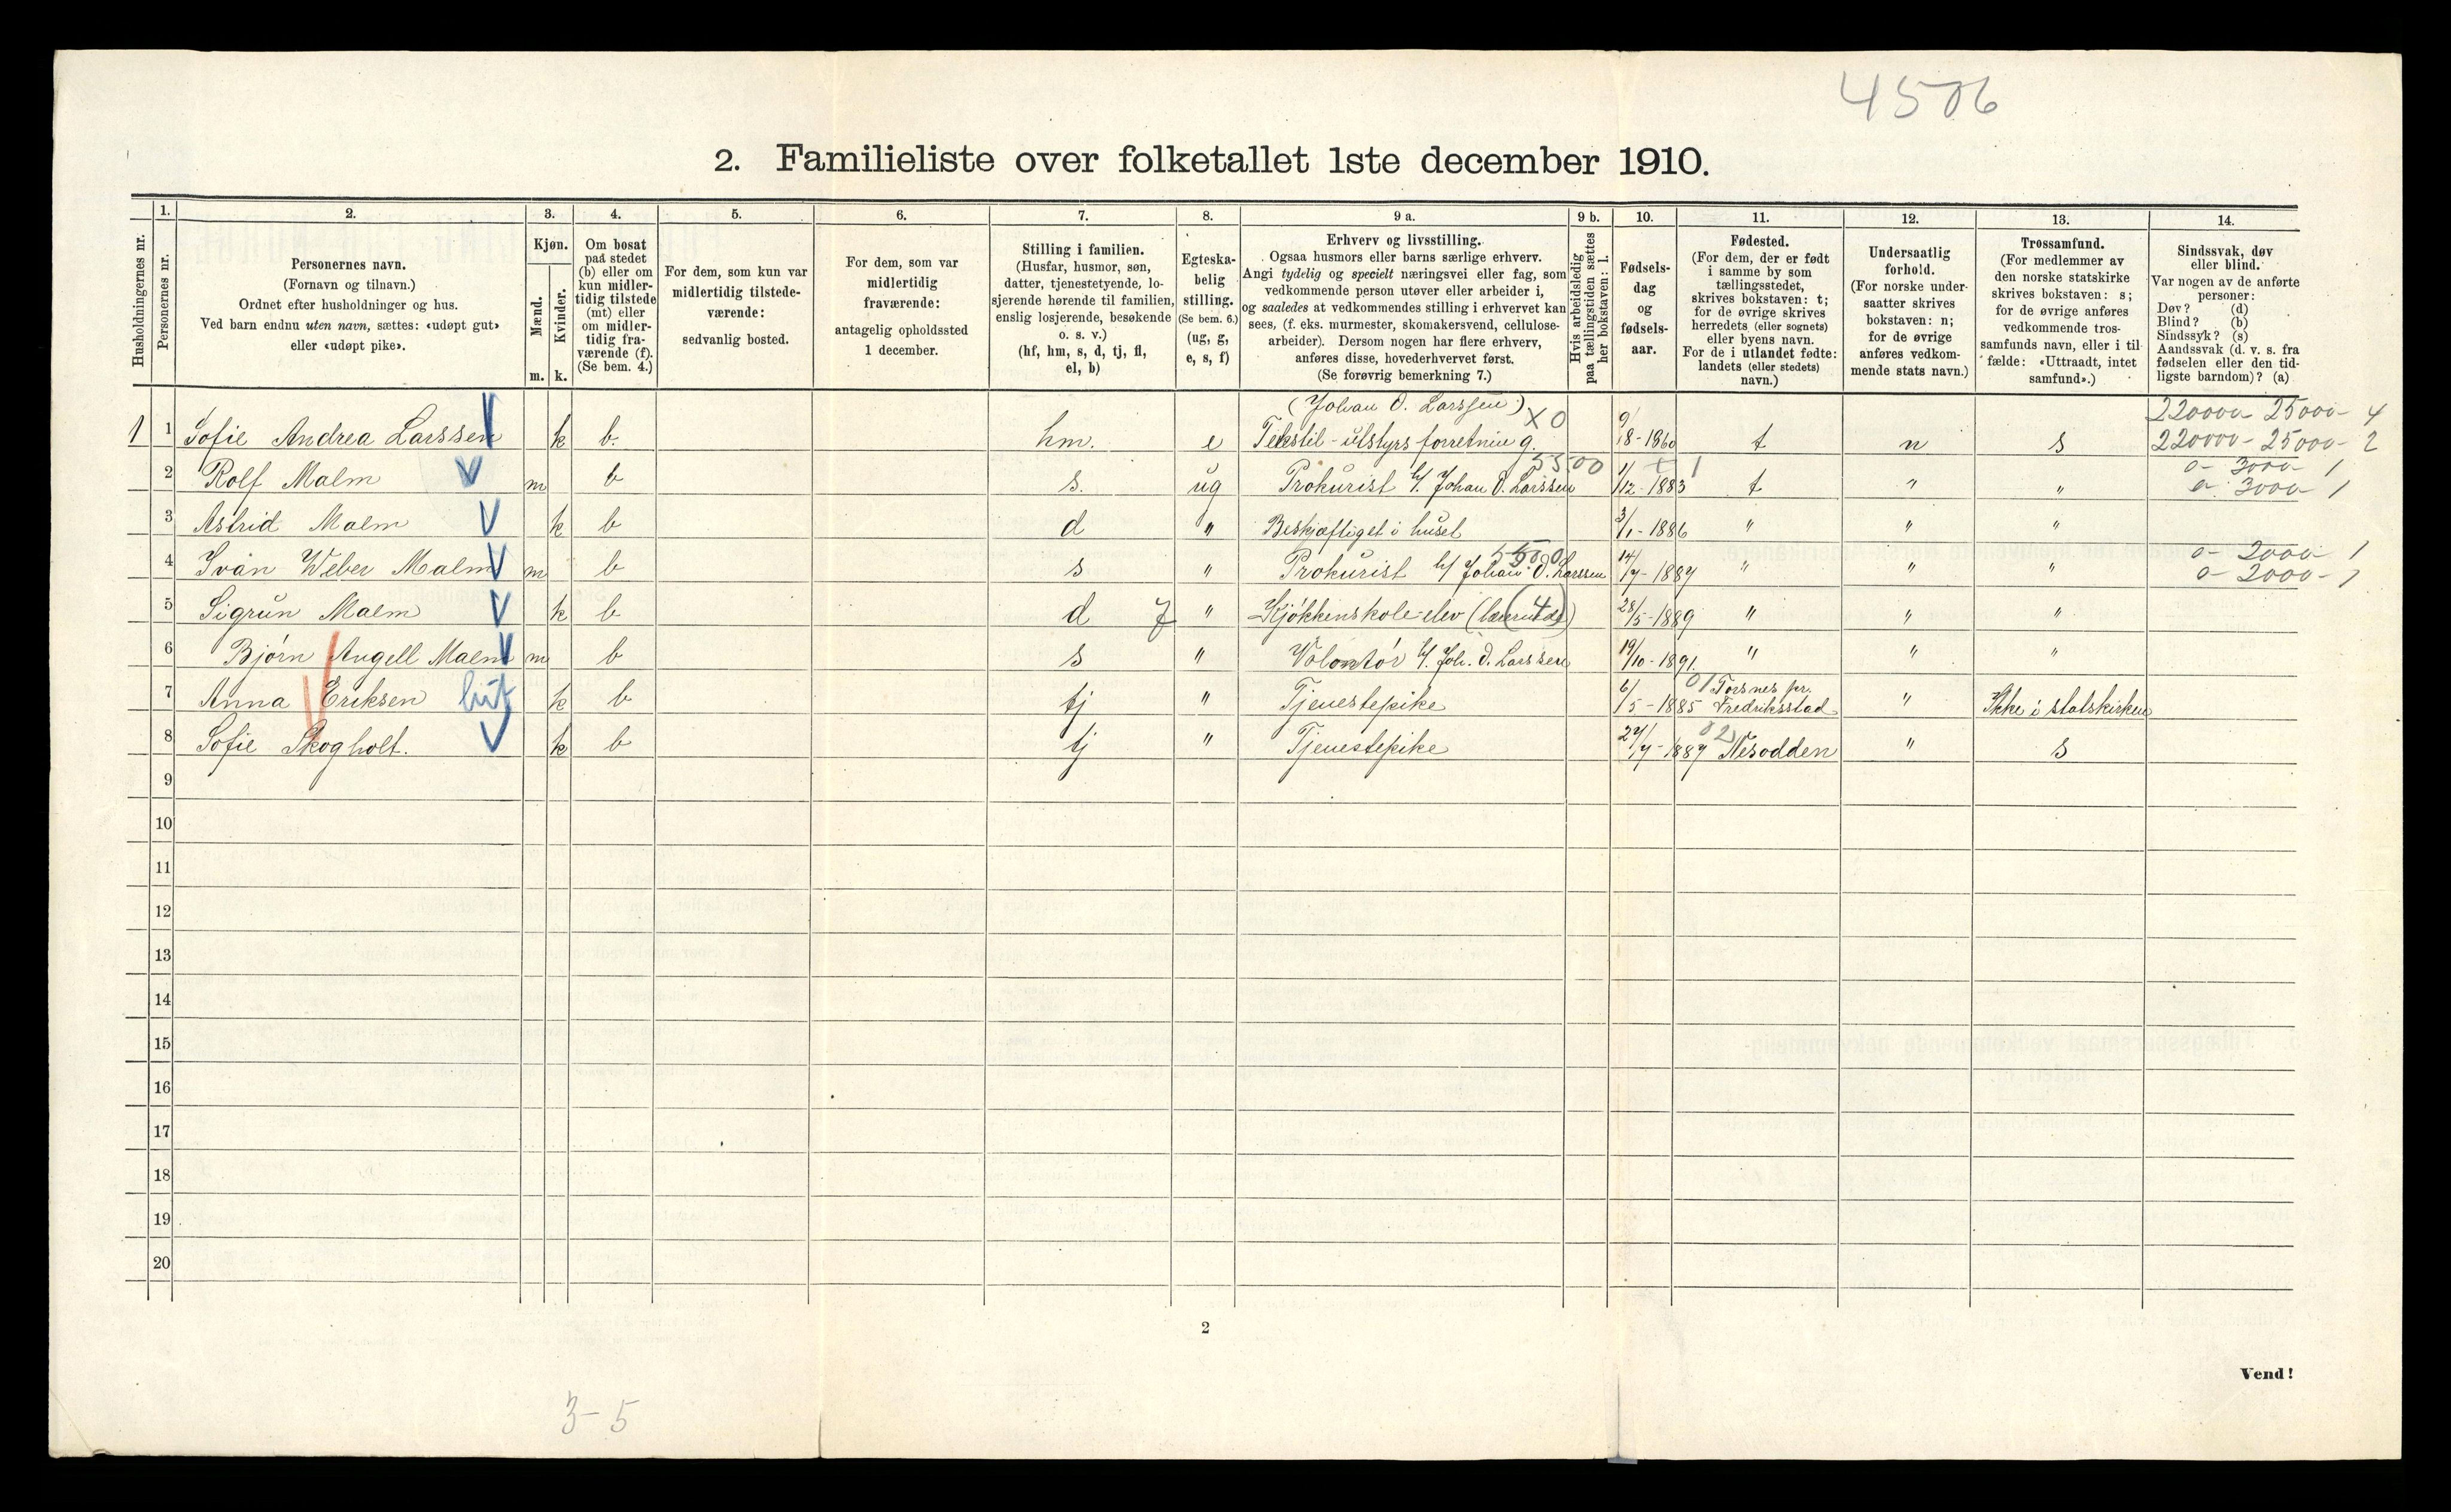 4506
2. Familieliste over folketallet 1ste december 1910.
Husholdningernes nr.
1.
Personernes nr.
2.
Personernes navn.
(Fornavn og tilnavn.)
Ordnet efter husholdninger og hus.
Ved barn endnu uten navn, sættes: «udøpt gut»
eller «udøpt pike».
3.
Kjøn.
Mænd.
Kvinder.
m. k.
4.
Om bosat
paa stedet
(b) eller om
kun midler-
tidig tilstede
(mt) eller
om midler-
tidig fra-
værende (f).
(Se bem. 4.)
5.
For dem, som kun var
midlertidig tilstede-
værende:
sedvanlig bosted.
6.
For dem, som var
midlertidig
fraværende:
antagelig opholdssted
1 december.
7.
Stilling i familien.
(Husfar, husmor, søn,
datter, tjenestetyende, lo-
sjerende hørende til familien,
enslig losjerende, besøkende
o. s. v.)
(hf, hm, s, d, tj, fl,
el, b)
8.
Egteska-
belig
stilling.
(Se bem. 6.)
(ug, g,
e, s, f)
9 a.
Erhverv og livsstilling.
Ogsaa husmors eller barns særlige erhverv.
Angi tydelig og specielt næringsvei eller fag, som
vedkommende person utøver eller arbeider i,
og saaledes at vedkommendes stilling i erhvervet kan
sees, (f. eks. murmester, skomakersvend, cellulose-
arbeider). Dersom nogen har flere erhverv,
anføres disse, hovederhvervet først.
(Se forøvrig bemerkning 7.)
9 b.
Hvis arbeidsledig
paa tællingstiden sættes
her bokstaven: l.
10.
Fødsels-
dag
og
fødsels-
aar.
11.
Fødested.
(For dem, der er født
i samme by som
tællingsstedet,
skrives bokstaven: t;
for de øvrige skrives
herredets (eller sognets)
eller byens navn.
For de i utlandet fødte:
landets (eller stedets)
navn.)
12.
Undersaatlig
forhold.
(For norske under-
saatter skrives
bokstaven: n;
for de øvrige
anføres vedkom-
mende stats navn.)
13.
Trossamfund.
(For medlemmer av
den norske statskirke
skrives bokstaven: s;
for de øvrige anføres
vedkommende tros-
samfunds navn, eller i til-
fælde: «Uttraadt, intet
samfund».)
14.
Sindssvak, døv
eller blind.
Var nogen av de anførte
personer:
Døv? (d)
Blind? (b)
Sindssyk? (s)
Aandssvak (d. v. s. fra
fødselen eller den tid-
ligste barndom)? (a)
(Johan O. Larssen) X0 220000- 25000- 4
1 1 Sofie Andrea Larssen k b. hm. e Tekstil-utstyrs forretning. 9/8-1860 t n s 220000- 25000- 2
5500 0- 3000- 1
2 Rolf Malm m b s. ug Prokurist h/. Johan O. Larssen 1/12-1883 t " " 0- 3000- 1
3 Astrid Malm k b d " Beskjæftiget i huset 3/1-1886 " " "
5500 0- 2000- 1
4 Ivan Weber Malm m b s " Prokurist h/ Johan O. Larssen 14/7-1887 " " " 0- 2000- 1
5 Sigrun Malm k b d 7 " Kjøkkenskole-elev (4) 28/5-1889 " " "
6 Bjørn Angell Malm m b s " Volontør h/. Joh. O. Larssen 19/10-1891 " " "
01 Torsnes pr.
7 Anna Eriksen k b tj " Tjenestepike 6/5-1885 Fredriksstad " Ikke i statskirken
02
8 Sofie Skogholt. k b tj " Tjenestepike 27/7-1887 Nesodden " s
9
10
11
12
13
14
15
16
17
18
19
20
2
Vend!
3-5